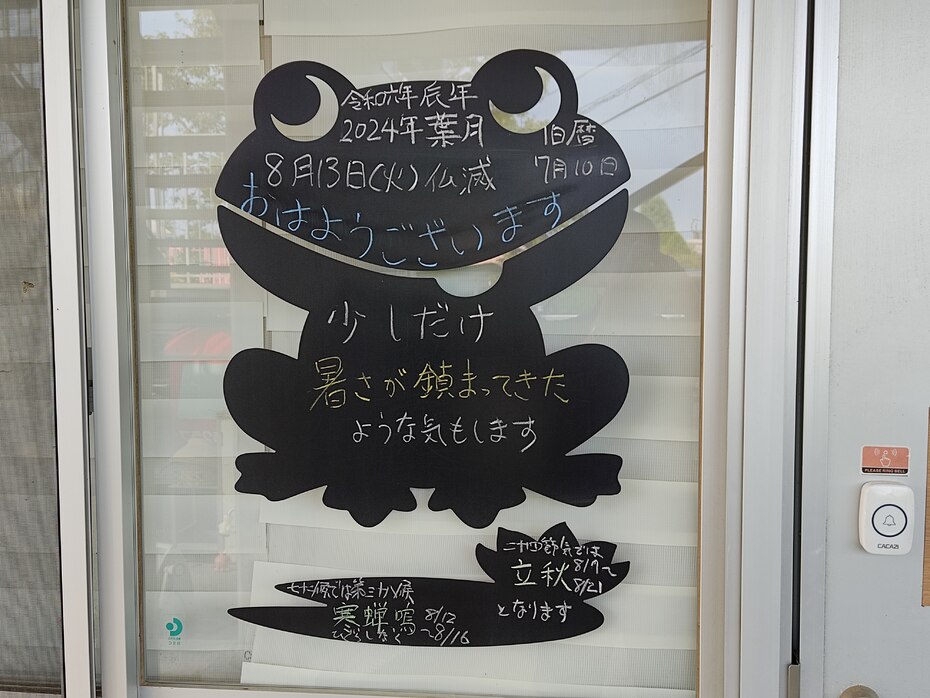 令和六年辰年
2024年葉月
旧暦
8月13日(火)仏滅
7月10日
おはようございます
少しだけ
暑さが鎮まってきた
ような気もします
二十四節気では
立秋 8/7〜
8/21
となります
七十二候では第三十八候
寒蝉鳴 8/12
ひぐらしなく 〜8/16
PLEASE RING BELL
CACAZI